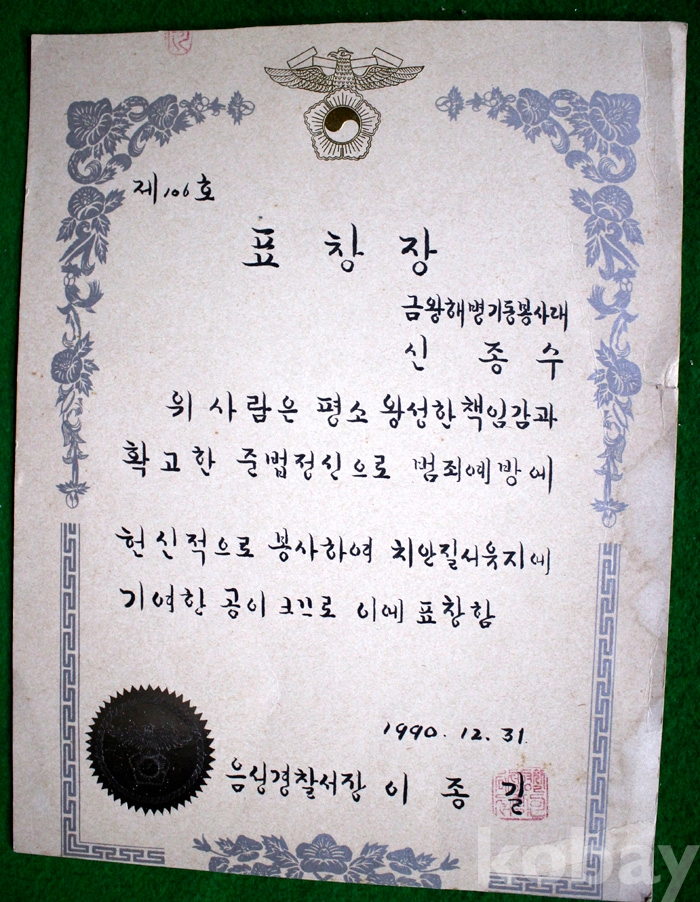 제 106 호
표 창 장
금왕해병기동봉사대
신 종 수
위 사람은 평소 왕성한 책임감과
확고한 준법정신으로 범죄예방에
헌신적으로 봉사하여 치안질서유지에
기여한 공이 크므로 이에 표창함
1990. 12. 31
음성경찰서장 이 종 길
kobay